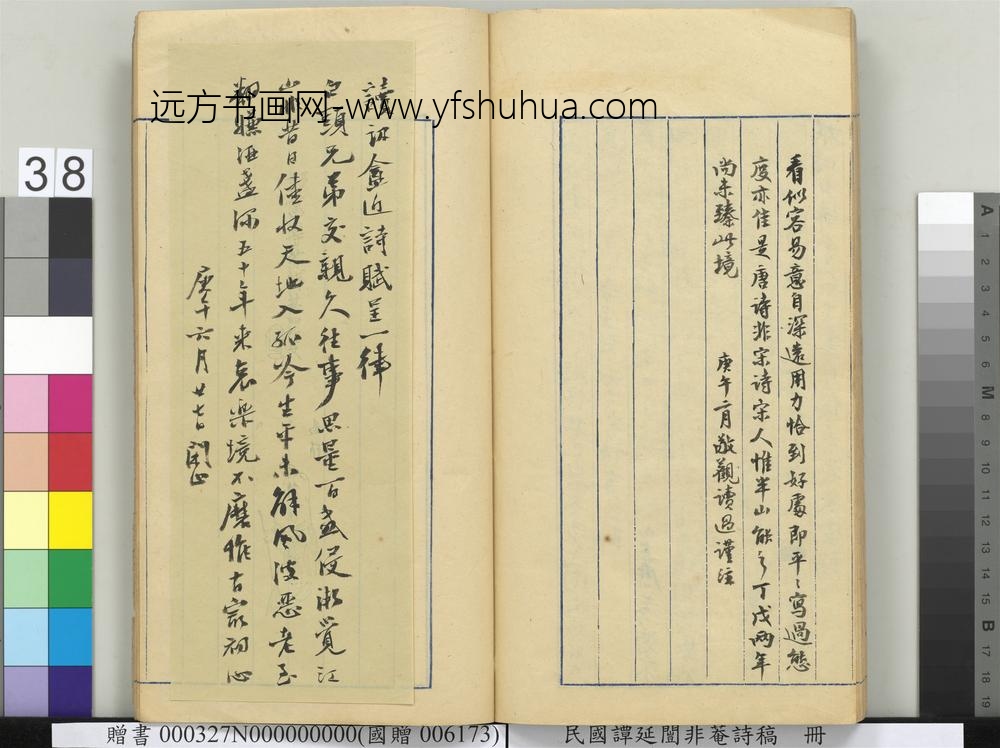 远方书画网-www.yfshuhua.com
38
看似容易意自深遠用力恰到好處即平々寫過態
度亦佳是唐詩非宋詩宋人惟半山能之丁戊兩年
尚未臻此境
庚午二月敬觀讀過謹注
讀訒盦近詩賦呈一律
白頭兄弟交親久往事思量百感侵漸覺江
山非昔日佳收天地入孤吟生平未解風波惡老至
酒盞深五十年來哀樂境不磨惟古寂初心
庚午六月廿七日闓上
A
1
2
3
4
5
6
M
8
9
10
11
12
13
14
15
B
17
18
19
贈書 000327N000000000(國贈 006173)
民國譚延闓非菴詩稿 冊